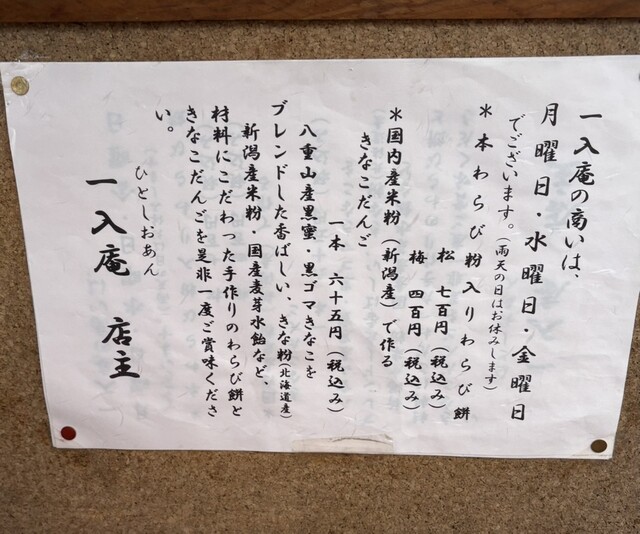 一入庵の商いは、
月曜日・水曜日・金曜日
でございます。(雨天の日はお休みします)
＊本わらび粉入りわらび餅
松　七百円(税込み)
梅　四百円(税込み)
＊国内産米粉(新潟産)で作る
きなこだんご
一本　六十五円(税込み)
八重山産黒蜜・黒ゴマきなこを
ブレンドした香ばしい、きな粉(北海道産)
新潟産米粉・国産麦芽水飴など、
材料にこだわった手作りのわらび餅と
きなこだんごを是非一度ご賞味くださ
い。
ひとしおあん
一入庵　店主